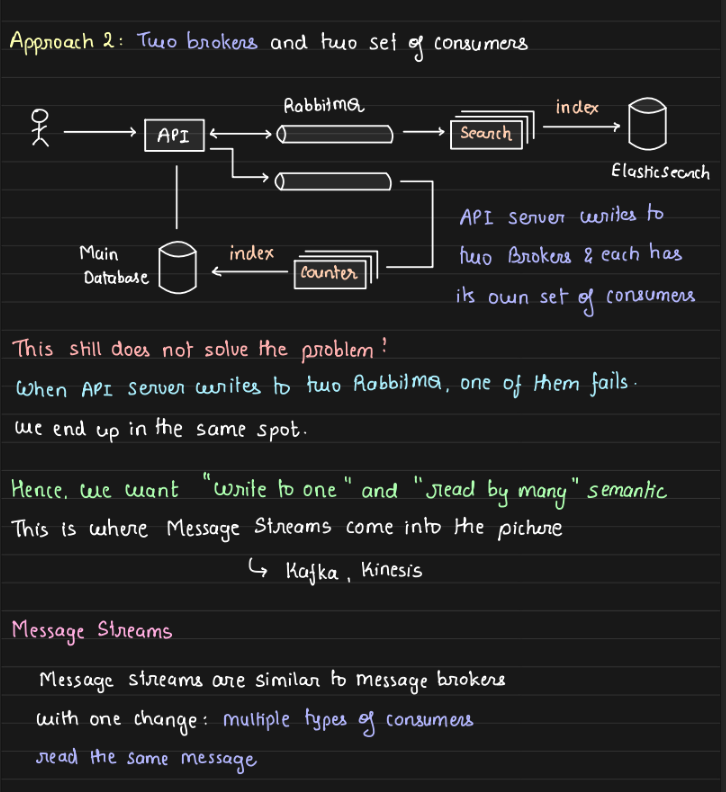 Approach 2: Two brokers and two set of consumers
RabbitMQ
API
Search
index
Elasticsearch
Main
Database
index
Counter
API server writes to
two Brokers & each has
its own set of consumers
This still does not solve the problem!
When API server writes to two RabbitMQ, one of them fails.
we end up in the same spot.
Hence, we want "write to one" and "read by many" semantic
This is where Message Streams come into the picture
↳ Kafka, Kinesis
Message Streams
Message streams are similar to message brokers
with one change: multiple types of consumers
read the same message